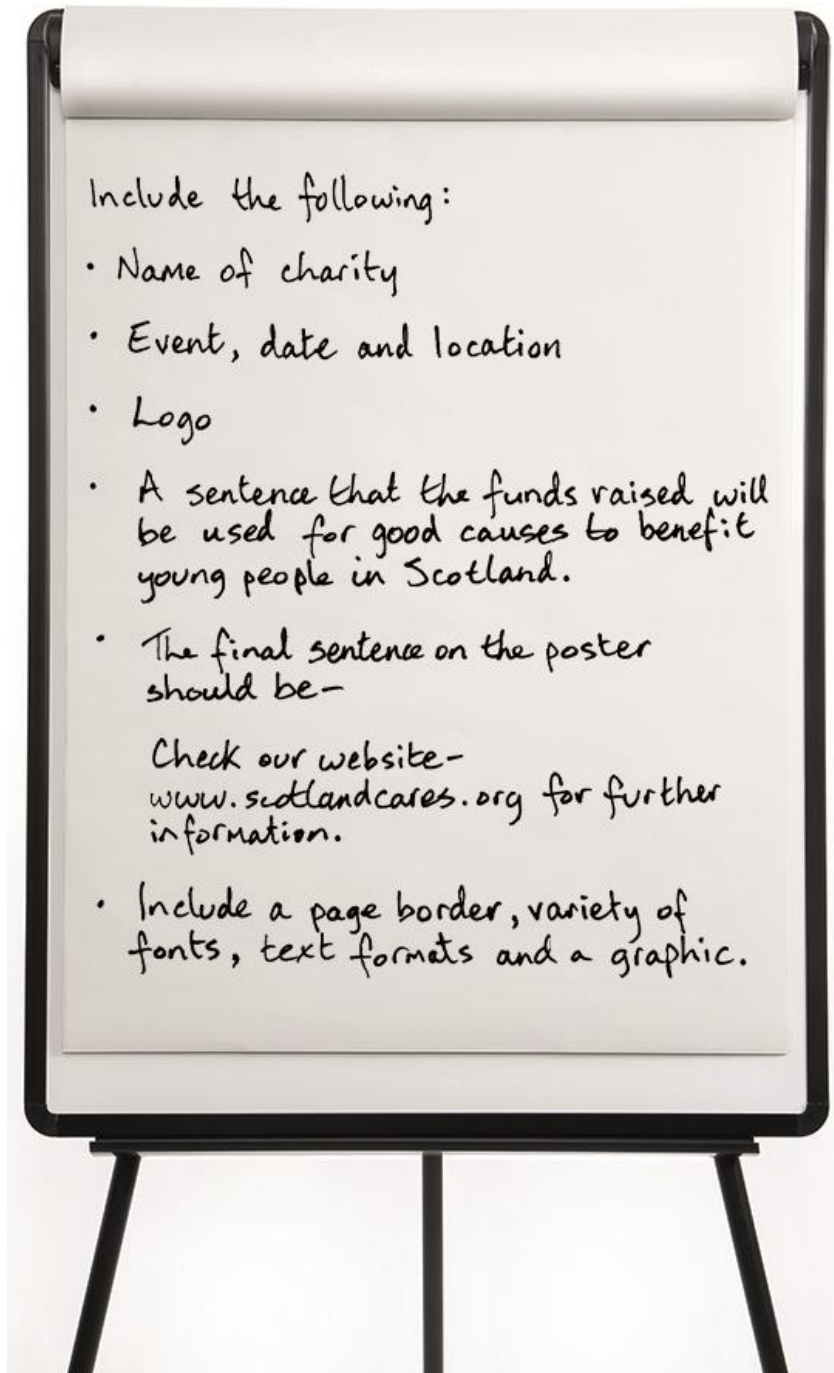 Include the following:
• Name of charity
• Event, date and location
• Logo
• A sentence that the funds raised will
be used for good causes to benefit
young people in Scotland.
• The final sentence on the poster
should be-
Check our website-
www.scotlandcares.org for further
information.
• Include a page border, variety of
fonts, text formats and a graphic.